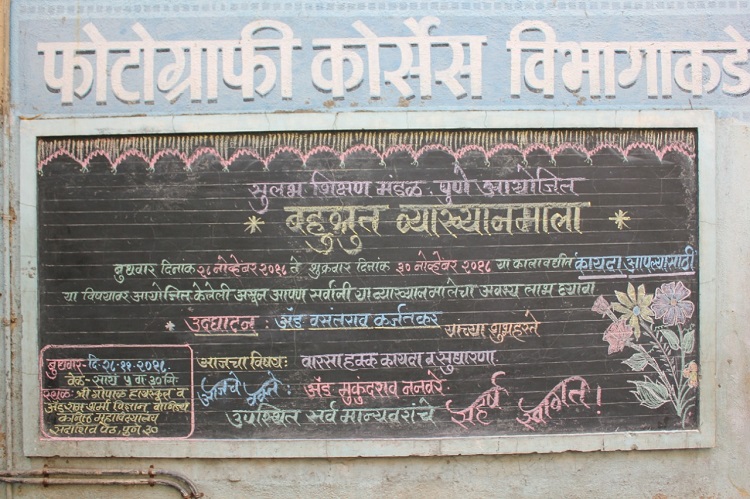 फोटोग्राफी कोर्सेस विभागाकडे
सुलभ शिक्षण मंडळ, पुणे आयोजित
* बहुश्रुत व्याख्यानमाला *
बुधवार दिनांक २८ नोव्हेंबर २०१८ ते शुक्रवार दिनांक ३० नोव्हेंबर २०१८ या कालावधीत कायदा आपल्यासाठी
या विषयावर आयोजित केलेली असून आपण सर्वांनी या व्याख्यानमालेचा अवश्य लाभ घ्यावा
* उद्घाटन : अॅड वसंतराव कर्जतकर यांच्या शुभहस्ते
आजचा विषय: वारसा हक्क कायदा व सुधारणा
आजचे वक्ते : अॅड मुकुंदराव ननवरे
उपस्थित सर्व मान्यवरांचे सहर्ष स्वागत!
बुधवार-दि.२८-११-२०१८
वेळ-सायं ५ वा ३० मि
स्थळ: श्री गोपाळ हायस्कूल व
विज्ञान वाणिज्य
कनिष्ठ महाविद्यालय
सदाशिव पेठ, पुणे ३०